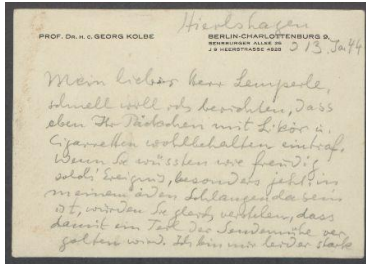 Hierlshagen
PROF. DR. H. C. GEORG KOLBE
BERLIN-CHARLOTTENBURG 9,
SENSBURGER ALLEE 25
J 9 HEERSTRASSE 4525
13 Jan 44
Mein lieber Herr Lemperle,
schnell will ich berichten, dass
eben Ihr Päckchen mit Likör u.
Cigaretten wohlbehalten eintraf.
Wenn Sie wüssten wie freudig
solch' Ereignis, besonders jetzt in
meinem öden Schlangendasein
ist, würden Sie gleich verstehen, dass
damit ein Teil der Sendemühe ver
golten wird. Ich bin mir leider stark